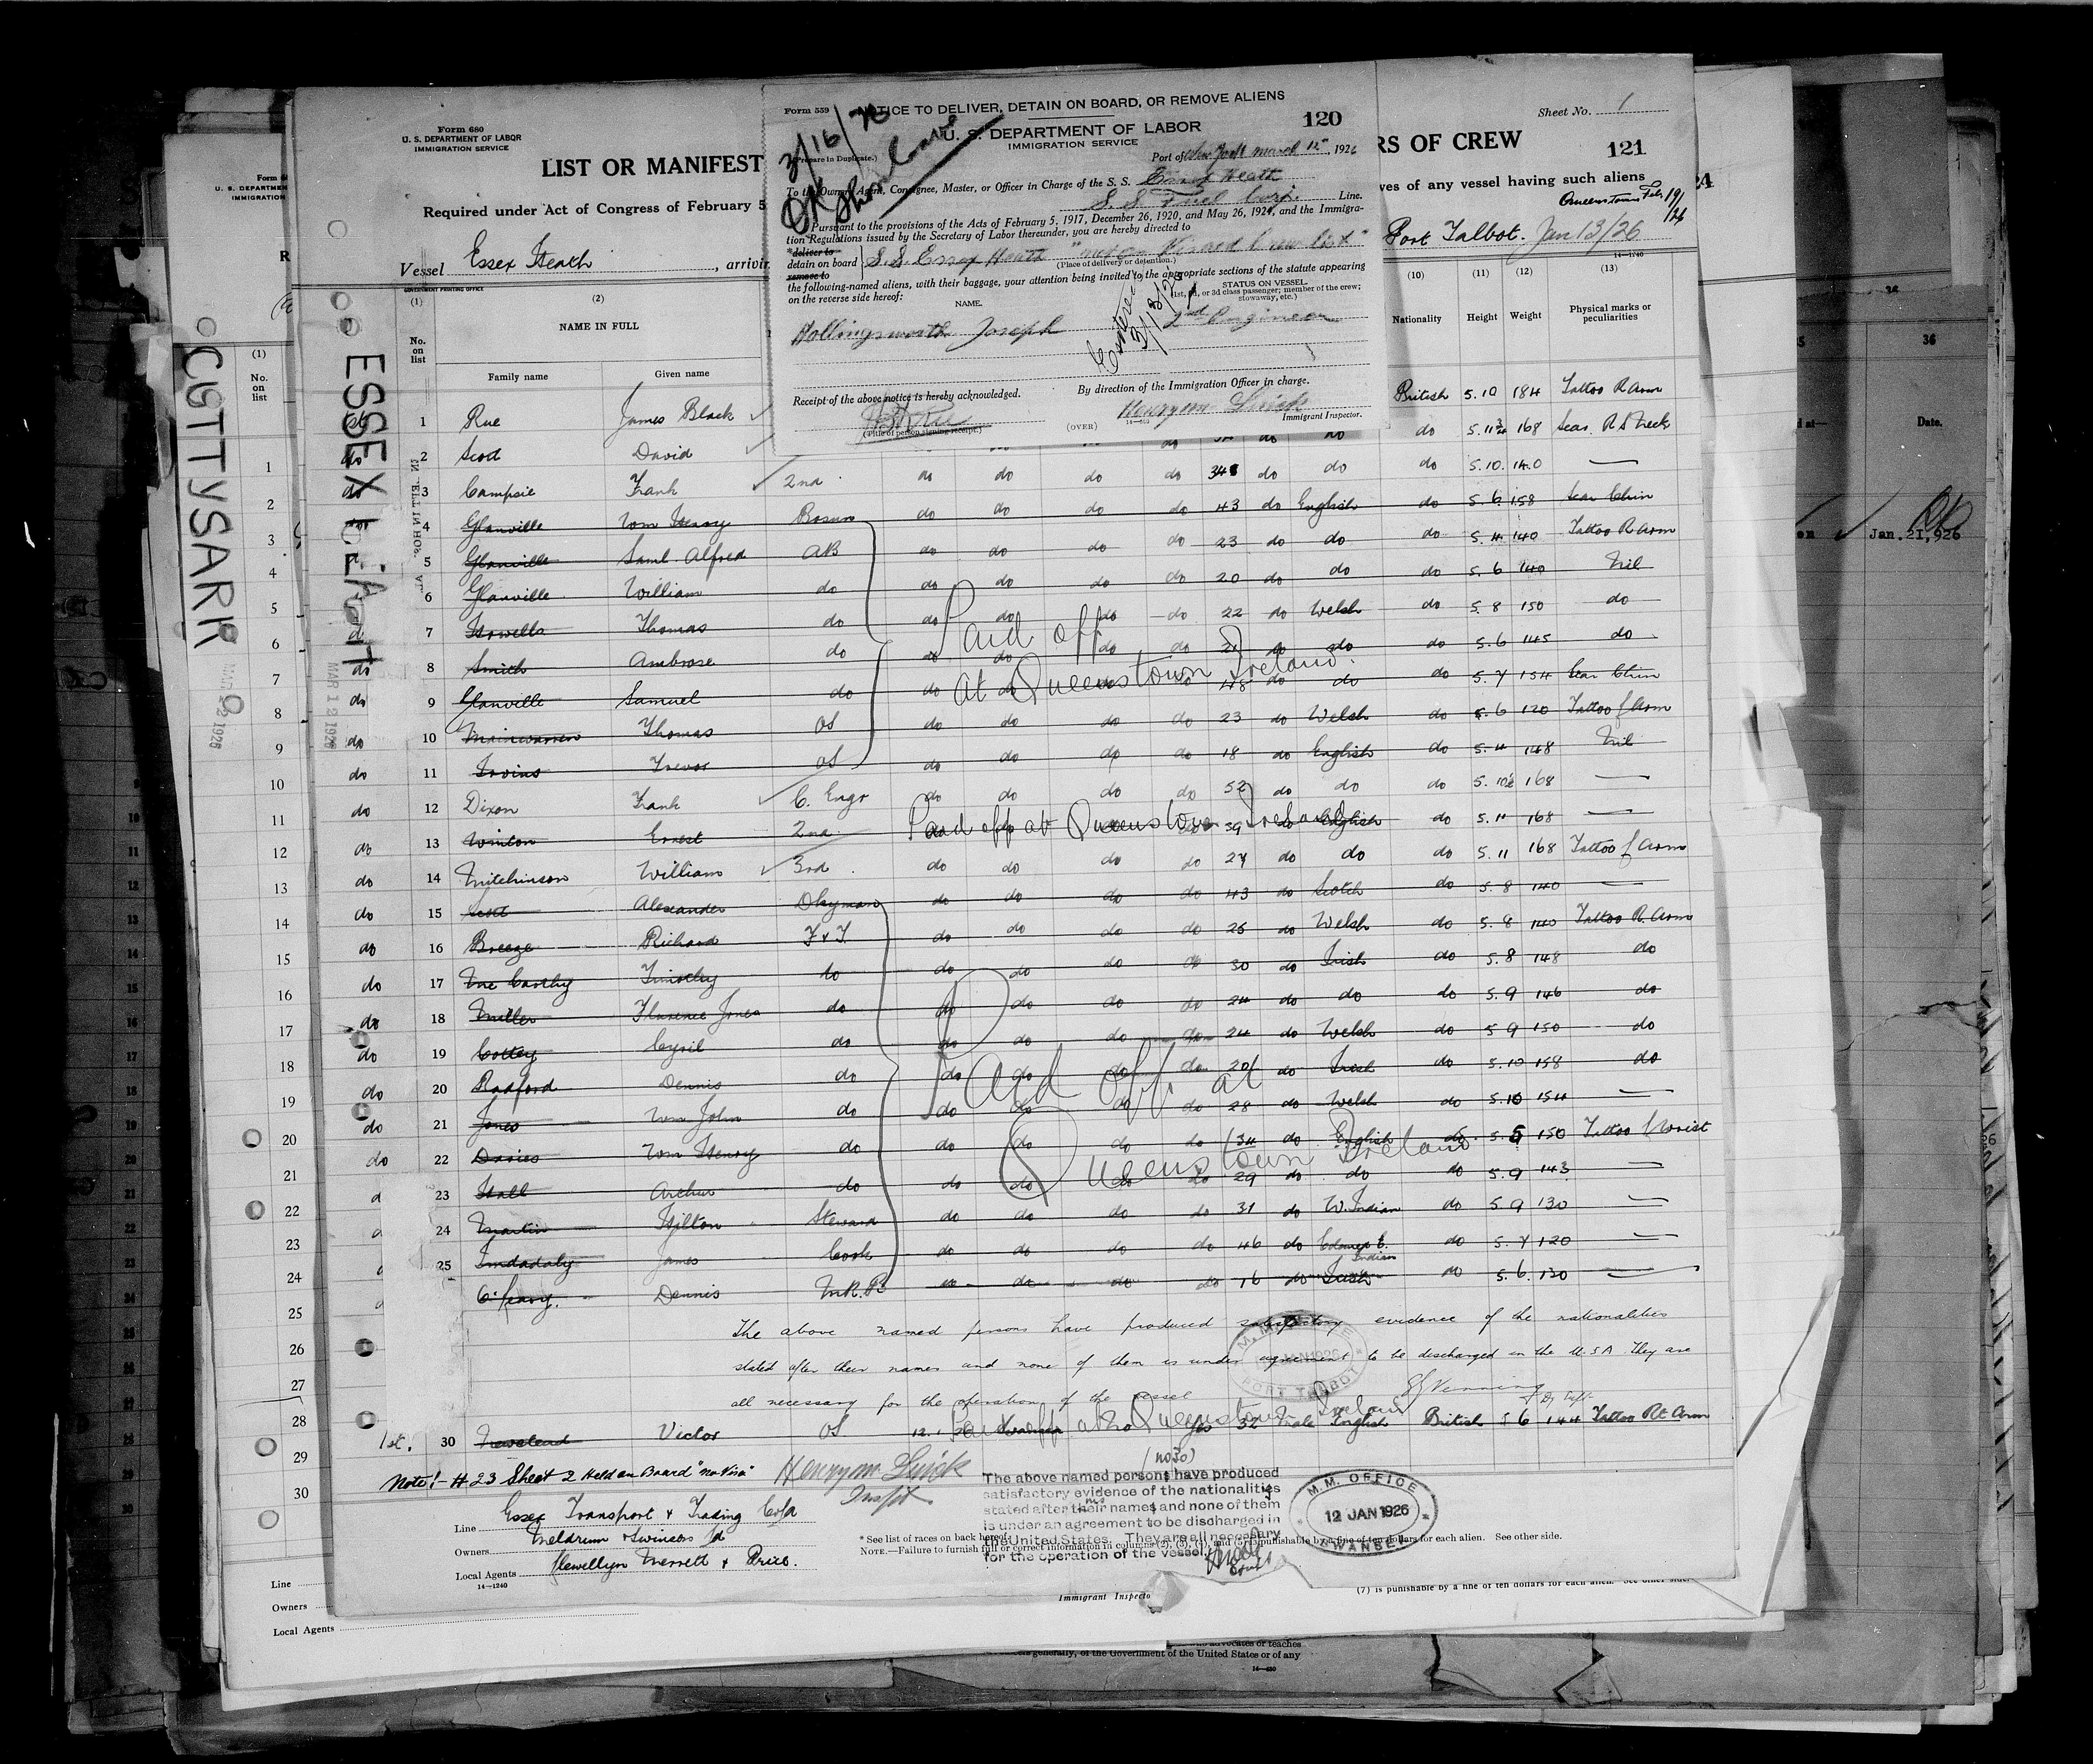 Form 559
NOTICE TO DELIVER, DETAIN ON BOARD, OR REMOVE ALIENS
120
U. S. DEPARTMENT OF LABOR
IMMIGRATION SERVICE
(Prepare in Duplicate.)
3/16/26
OK Shore Leave
Port of New York March 12", 1926
To the Owner, Agent, Consignee, Master, or Officer in Charge of the S. S. Essex Heath
S. S. Fuel Corp. Line.
Pursuant to the provisions of the Acts of February 5, 1917, December 26, 1920, and May 26, 1924, and the Immigra-
tion Regulations issued by the Secretary of Labor thereunder, you are hereby directed to
*deliver to
detain on board S.S. Essex Heath "not on Visaed Crew list"
remove to
(Place of delivery or detention.)
the following-named aliens, with their baggage, your attention being invited to the appropriate sections of the statute appearing
on the reverse side hereof:
NAME.
STATUS ON VESSEL.
(1st, 2d, or 3d class passenger; member of the crew; stowaway, etc.)
Hollingsworth Joseph 2nd Engineer
Receipt of the above notice is hereby acknowledged.
By direction of the Immigration Officer in charge.
Henry M
(Title of person signing receipt.)
(OVER)
Immigrant Inspector.
Form 680
U. S. DEPARTMENT OF LABOR
IMMIGRATION SERVICE
Sheet No. 1
LIST OR MANIFEST
RS OF CREW
121
Required under Act of Congress of February 5
ves of any vessel having such aliens
Queenstown Feb. 19/26
Vessel Essex Heath, arrivin
Port Talbot. Jan 13/26
GOVERNMENT PRINTING OFFICE
14—1240
(1) (2) (10) (11) (12) (13)
No. on list
NAME IN FULL
Family name Given name
Nationality Height Weight Physical marks or peculiarities
ESSEX HEATH
MAR 12 1926
CUTTYSARK
1 Rue James Black British 5.10 184 Tattoo R Arm
2 Scott David do 5.11¾ 168 Scar R S Neck
3 Campsie Frank 2nd do do do do 34 do do do 5.10. 140 —
4 Glanville Wm Henry Bosun do do do do 43 do English do 5.6 158 Scar Chin
5 Glanville Saml. Alfred AB do do do do 23 do do do 5.4 140 Tattoo R Arm
6 Glanville William do do do do do 20 do do do 5.6 140 Nil
7 Howells Thomas do do do do do 22 do Welsh do 5.8 150 do
8 Smith Ambrose do do do do do 21 do do do 5.6 145 do
9 Glanville Samuel do do do do do 48 do do do 5.7 154 Scar Chin
10 Mainwarren Thomas OS do do do do 23 do Welsh do 5.6 120 Tattoo L Arm
11 Irvins Trevor OS do do do do 18 do English do 5.4 148 Nil
Paid off
at Queenstown Ireland.
12 Dixon Frank C. Engr do do do do 52 do do do 5.10½ 168 —
13 Winton Ernest 2nd do 39 do English do 5.11 168 —
Paid off at Queenstown Ireland
14 Mitchinson William 3rd do do do do 27 do do do 5.11 168 Tattoo L Arm
15 Scott Alexander Dkyman do do do do 43 do Scotch do 5.8 140 —
16 Breeze Richard F & T. do do do do 25 do Welsh do 5.8 140 Tattoo R. Arm
17 McCarthy Timothy do do do do do 30 do Irish do 5.8 148 do
18 Miller Florence Jones do do do do do 24 do do do 5.9 146 do
19 Cottey Cyril do do do do do 24 do Welsh do 5.9 150 do
20 Radford Dennis do do do do do 20 do Irish do 5.10 158 do
21 Jones Wm John do do do do do 28 do Welsh do 5.10 154 —
22 Davies Wm Henry do do do do do 34 do English do 5.5 150 Tattoo L Wrist
23 Hall Arthur do do do do do 29 do do do 5.9 143 —
24 Martin Hilton Steward do do do do 31 do W. Indian do 5.9 130 —
25 James Cook do do do do 46 do E. Indian do 5.7 120 —
O'Leary. Dennis M.R.B do do do do 16 do Irish do 5.6. 130 —
Paid off at
Queenstown Ireland
The above named persons have produced satisfactory evidence of the nationalities
stated after their names and none of them is under agreement to be discharged in the U.S.A They are
all necessary for the operation of the vessel
JAN 1926
PORT TALBOT
1st. 30 Newstead Victor OS 12.1.26 Swansea no Yes 32 Male English British 5 6 144 Tattoo Rt Arm
Paid off at Queenstown Ireland
Note! - #23 Sheet 2 Held on Board "no Visa" Henry M
Inspt.
(no 30)
The above named persons have produced
satisfactory evidence of the nationalities
stated after their names and none of them
is under an agreement to be discharged in
the United States. They are all necessary
for the operation of the vessel.
M. M. OFFICE
12 JAN 1926
SWANSEA
Line Essex Transport & Trading Co Ld
Owners Meldrum & Swinson Ld
Local Agents Llewellyn Merrett & Price.
14—1240
* See list of races on back hereof.
NOTE.—Failure to furnish full or correct information in columns is punishable by a fine of ten dollars for each alien. See other side.
Line
Owners
Local Agents
Immigrant Inspecto
(7) is punishable by a fine of ten dollars for each alien. See other side.
36
Date.
Jan. 21, 926